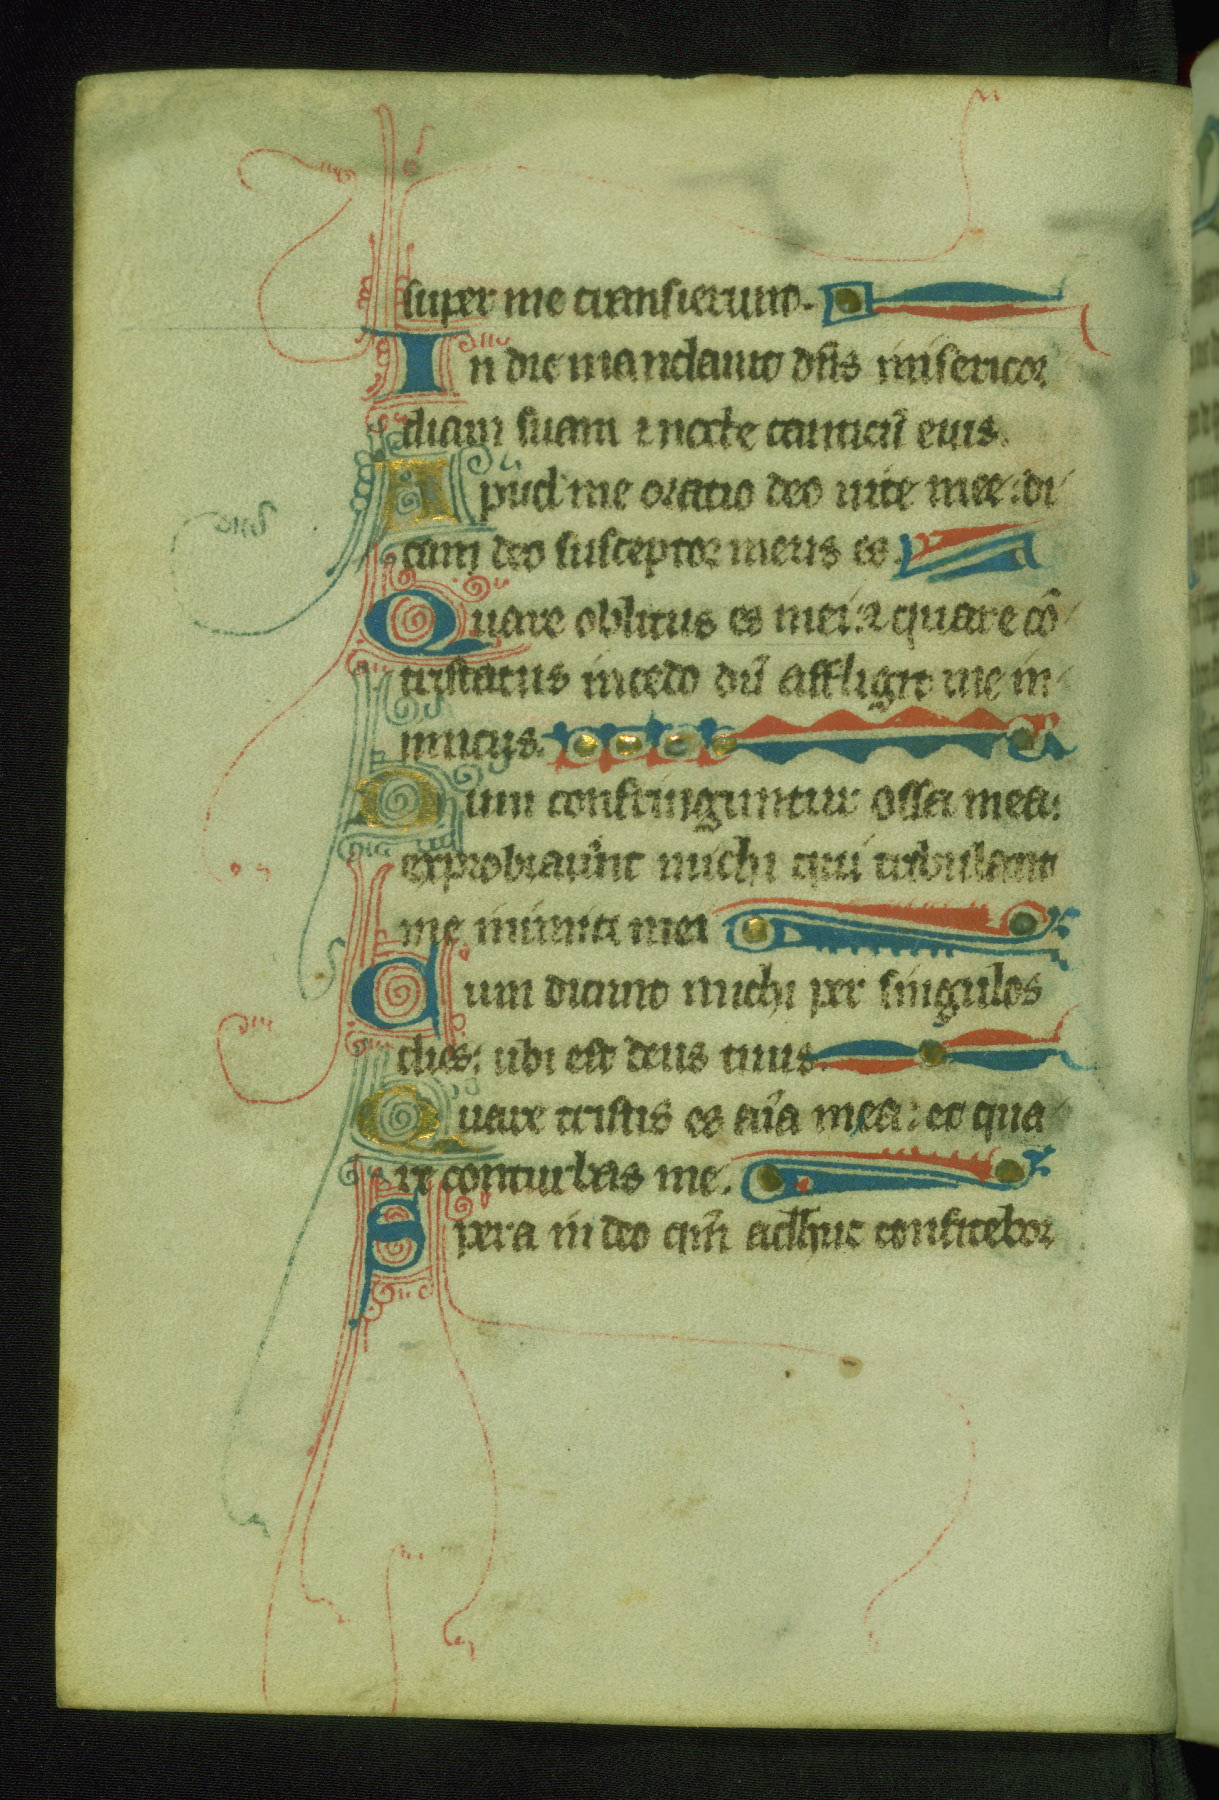 super me transierunt.
In die mandauit dñs misericor
diam suam ⁊ nocte canticũ eius.
Apud me oratio deo uite mee: di
cam deo susceptor meus es.
Quare oblitus es mei: ⁊ quare cõ
tristatus incedo dũ affligit me in
imicus.
Dum confringuntur ossa mea:
exprobraũnt michi qui tribulant
me inimici mei
Dum dicunt michi per singulos
dies: ubi est deus tuus.
Quare tristis es aĩa mea: et qua
re conturbas me.
Spera in deo qm̃ adhuc confitebor